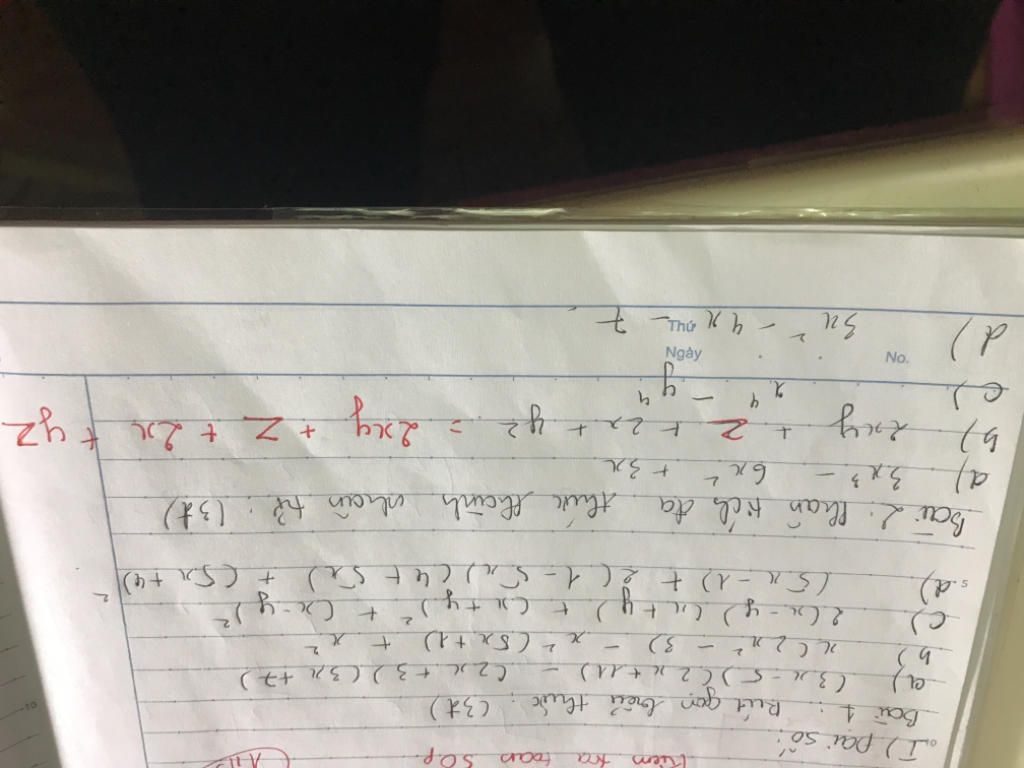 Kiểm tra toán 50p
I) Đại số:
Bài 1: Rút gọn biểu thức: (3đ)
a) (3x - 5)(2x + 11) - (2x + 3)(3x + 7)
b) x(2x² - 3) - x²(5x + 1) + x²
c) 2(x - y)(x + y) + (x + y)² + (x - y)²
d) (5x - 1) + 2(1 - 5x)(4 + 5x) + (5x + 4)²
Bài 2: Phân tích đa thức thành nhân tử: (3đ)
a) 3x³ - 6x² + 3x
b) 2xy + z + 2x + yz = 2xy + z + 2x + yz
c) x⁴ - y⁴
d) 3x² - 4x - 7
Thứ
Ngày
No.
5
10